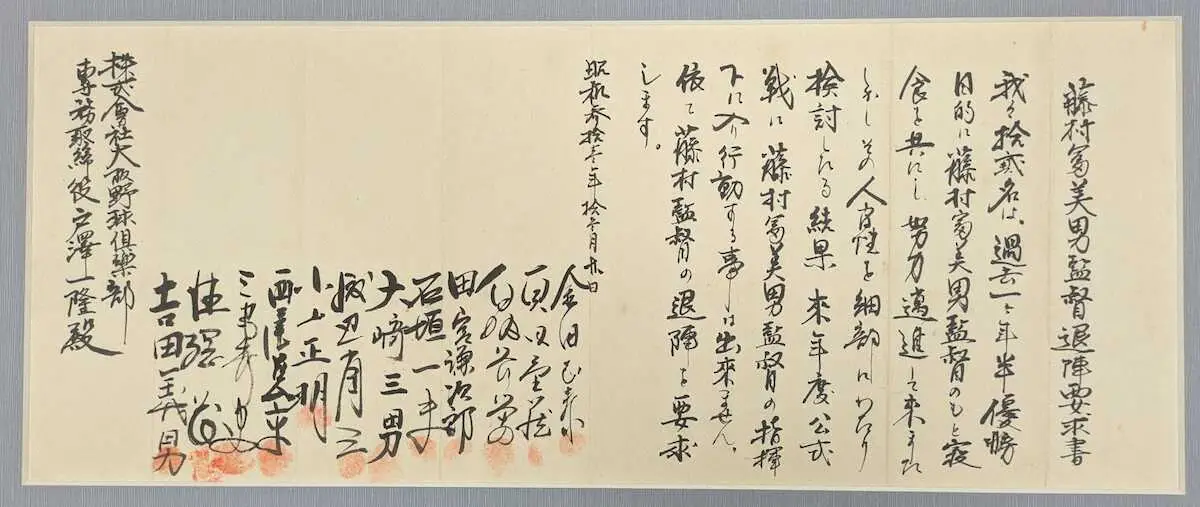 藤村冨美男監督退陣要求書
我々拾貮名は、過去一ヶ年半優勝
目的に藤村冨美男監督のもと寝
食を共にし努力邁進して来ました
しかしその人間性を細部にわたり
検討したる結果来年度公式
戦に藤村冨美男監督の指揮
下に入り行動する事は出来ません。
依て藤村監督の退陣を要求
します。
昭和参拾壱年拾一月 日
金田正泰
真田重蔵
白坂長栄
田宮謙次郎
石垣一夫
大崎三男
渡辺省三
小山正明
西村一孔
三宅秀史
吉田義男
株式會社大阪野球倶楽部
専務取締役戸澤一隆殿